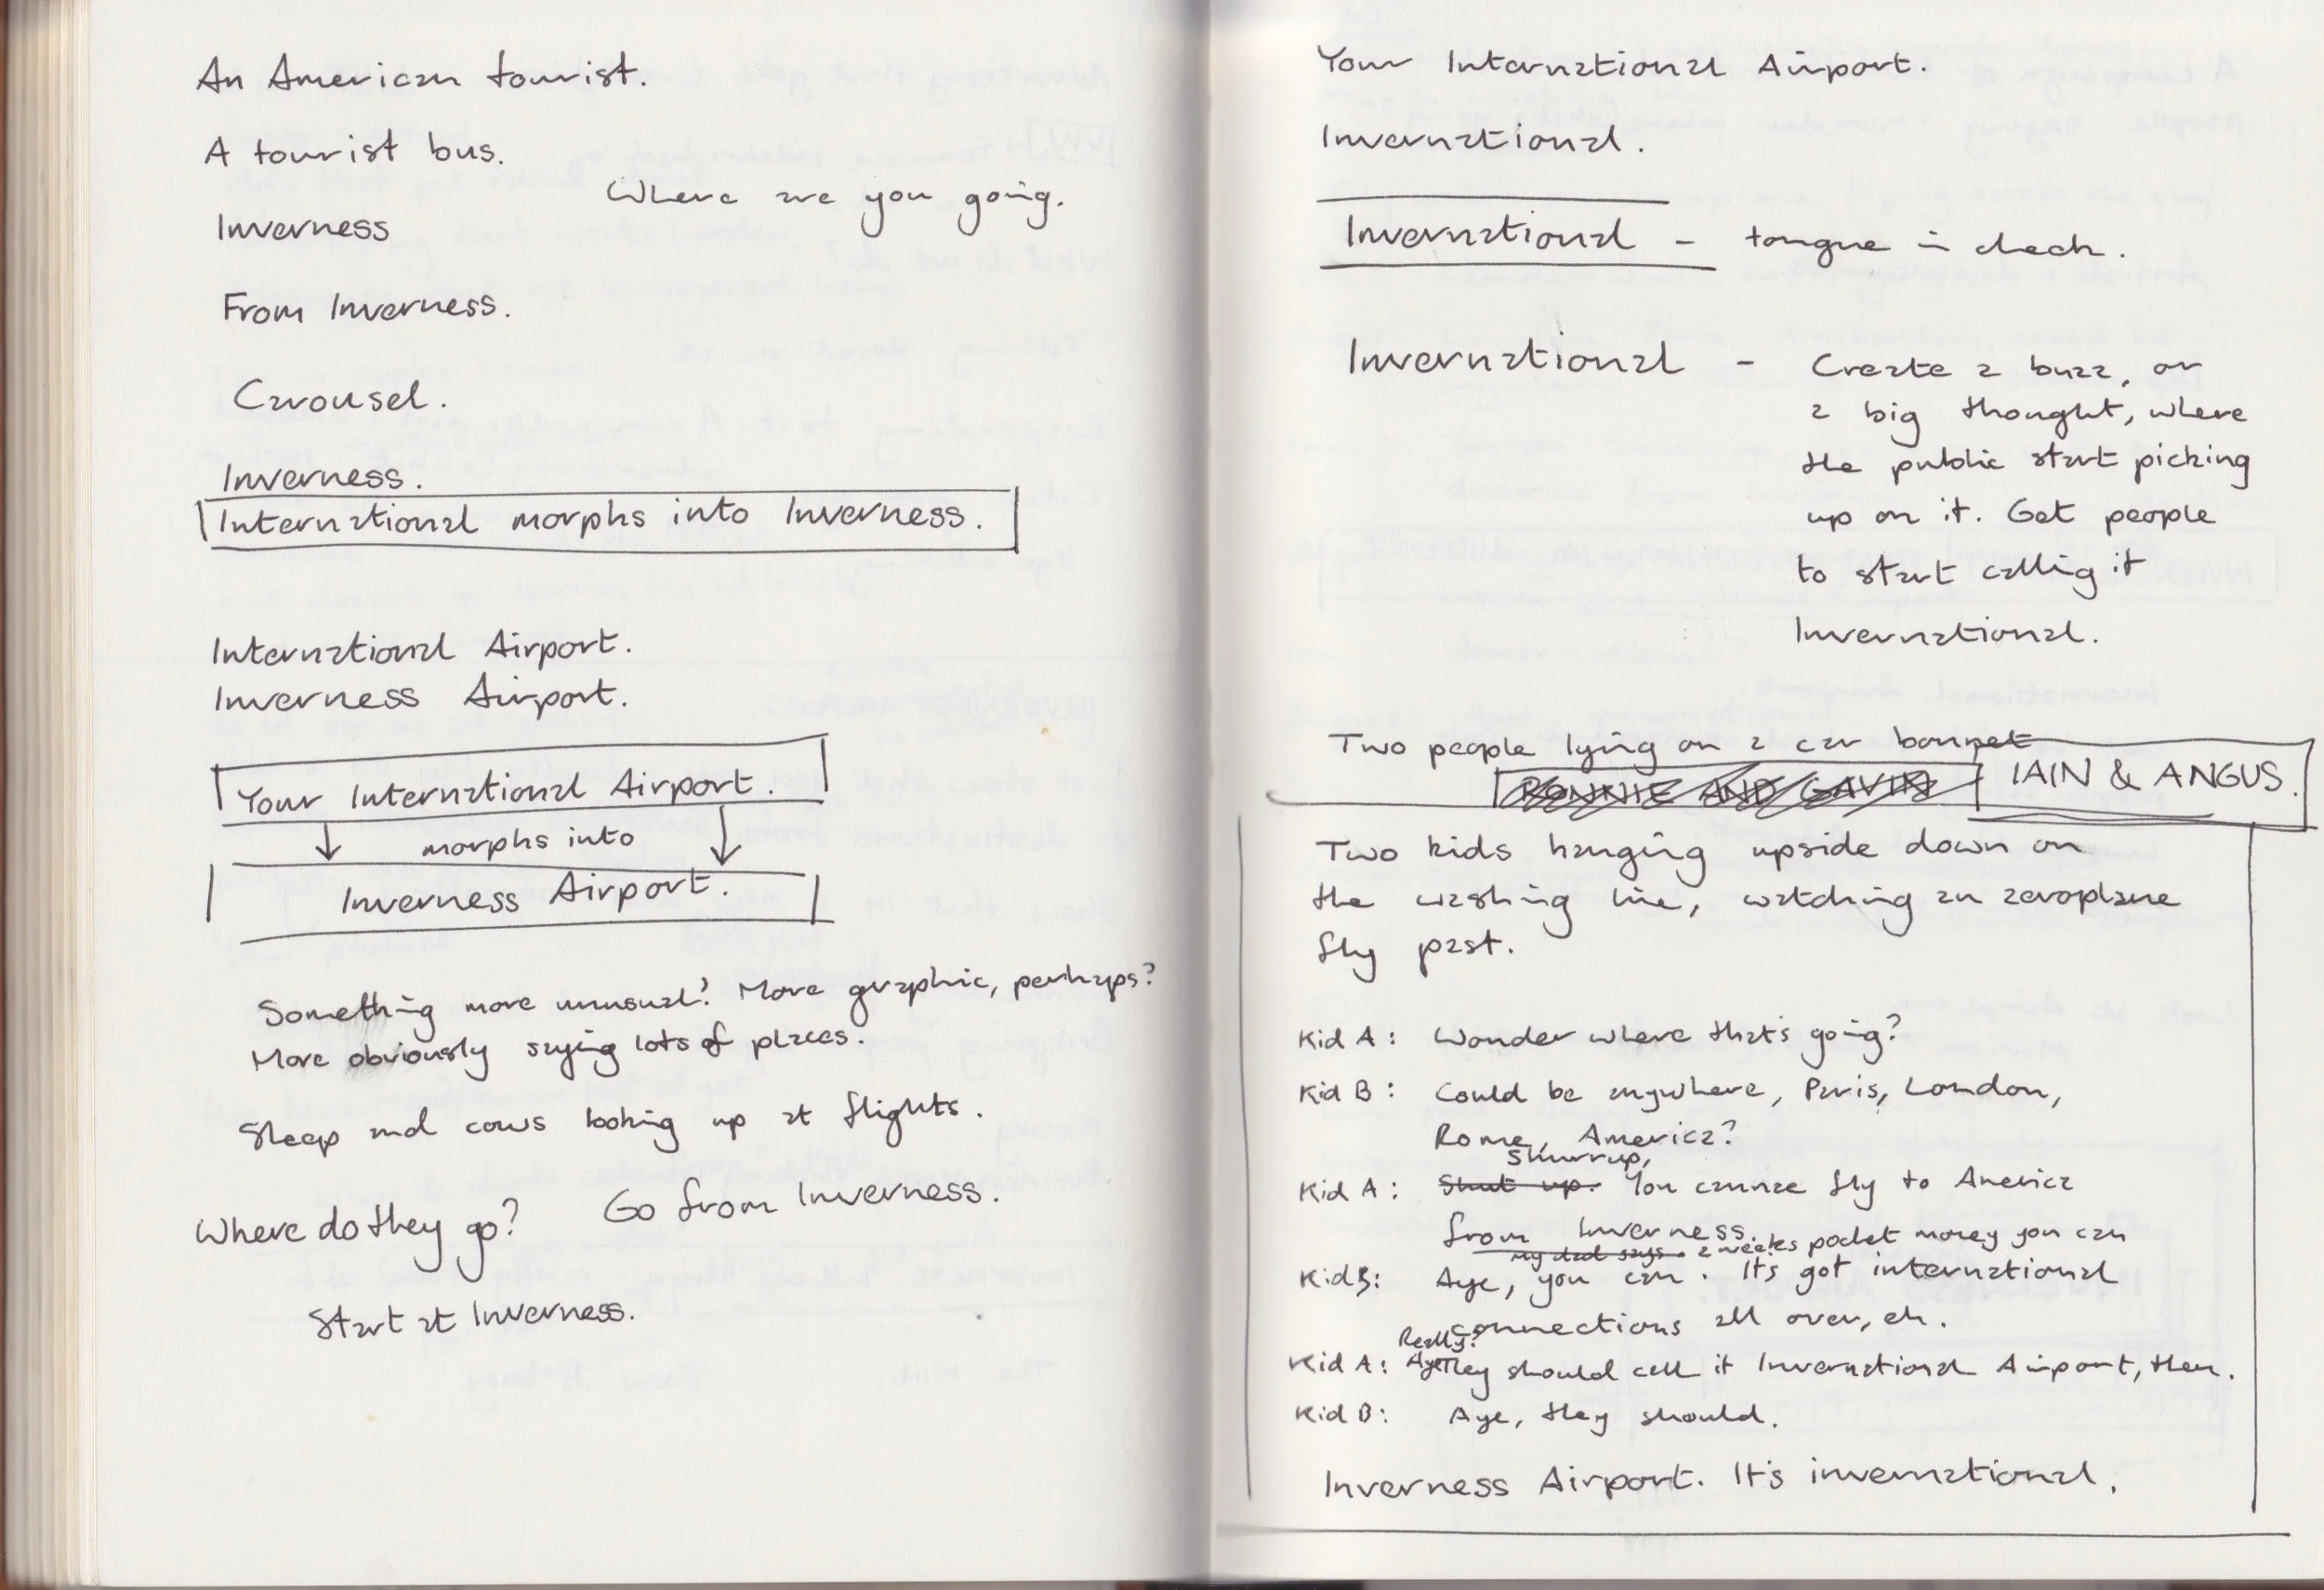 An American tourist.
A tourist bus.
Where are you going.
Inverness
From Inverness.
Carousel.
Inverness.
International morphs into Inverness.
International Airport.
Inverness Airport.
Your International Airport.
morphs into
Inverness Airport.
Something more unusual? More graphic, perhaps?
More obviously saying lots of places.
Sheep and cows looking up at flights.
Where do they go? Go from Inverness.
Start at Inverness.
Your International Airport.
Invernational.
Invernational - tongue in cheek.
Invernational - Create a buzz, or
a big thought, where
the public start picking
up on it. Get people
to start calling it
Invernational.
Two people lying on a car bonnet
RONNIE AND GAVIN IAIN & ANGUS.
Two kids hanging upside down on
the washing line, watching an aeroplane
fly past.
Kid A: Wonder where that's going?
Kid B: Could be anywhere, Paris, London,
Rome, America?
Shurrup,
Kid A: Shut up. You cannae fly to America
from Inverness.
my dad says. 2 weeks pocket money you can
Kid B: Aye, you can. It's got international
connections all over, eh.
Really?
Kid A: Aye They should call it Invernational Airport, then.
Kid B: Aye, they should.
Inverness Airport. It's invernational.